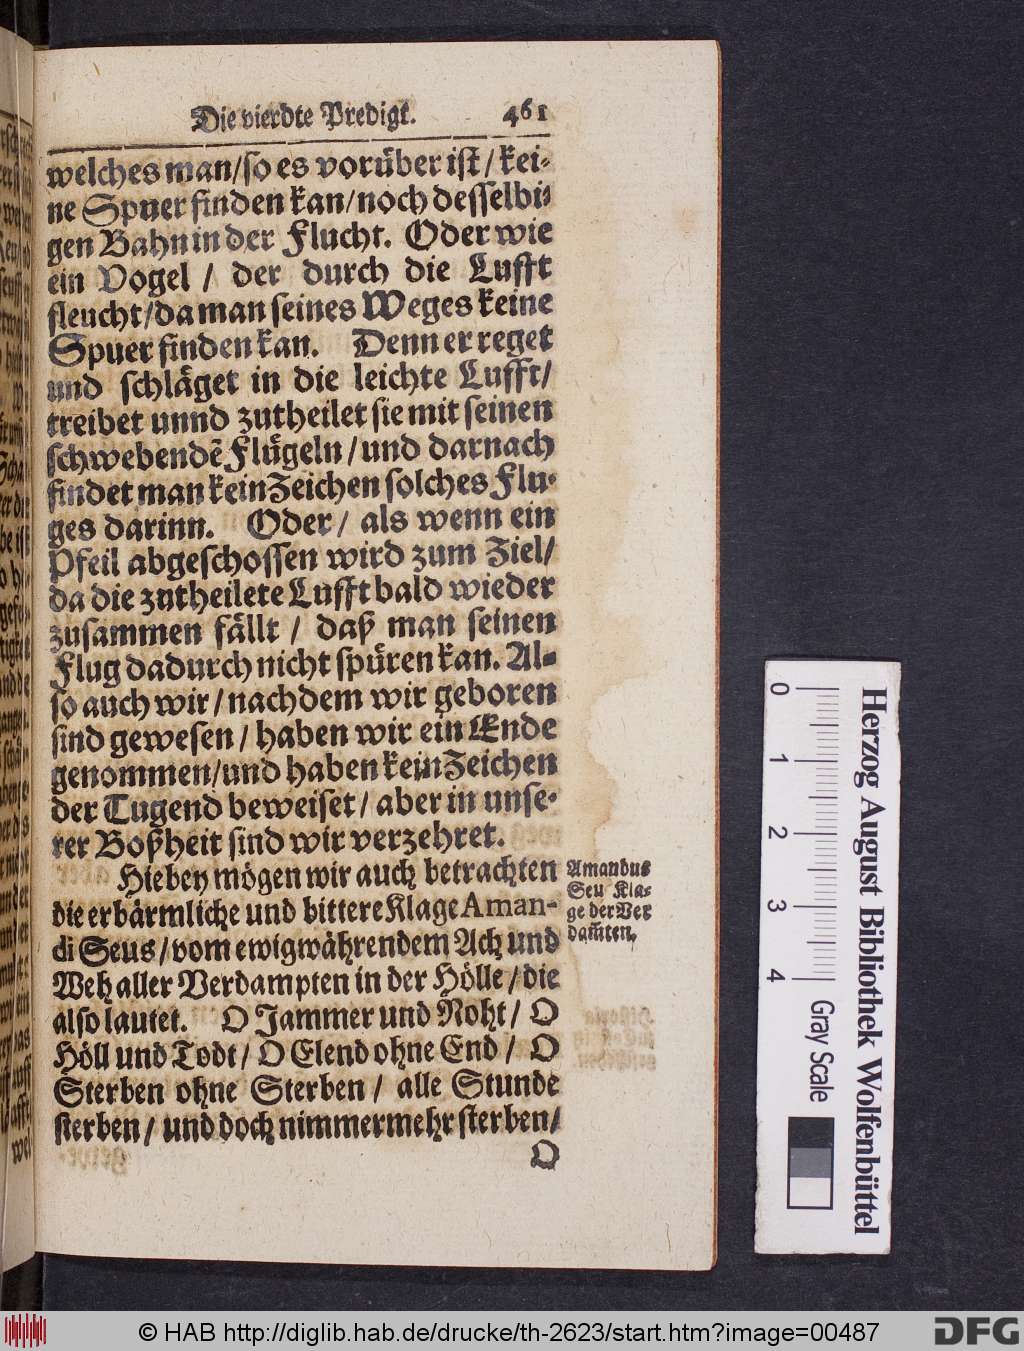 Die vierdte Predigt. 461
welches man/so es vorüber ist/kei-
ne Spuer finden kan/noch desselbi-
gen Bahn in der Flucht. Oder wie
ein Vogel / der durch die Lufft
fleucht/da man seines Weges keine
Spuer finden kan. Denn er reget
und schläget in die leichte Lufft/
treibet unnd zutheilet sie mit seinen
schwebendẽ Flügeln/und darnach
findet man kein Zeichen solches Flu-
ges darinn. Oder/ als wenn ein
Pfeil abgeschossen wird zum Ziel/
da die zutheilete Lufft bald wieder
zusammen fällt / daß man seinen
Flug dadurch nicht spüren kan. Al-
so auch wir/nachdem wir geboren
sind gewesen/haben wir ein Ende
genommen/und haben kein Zeichen
der Tugend beweiset/aber in unse-
rer Boßheit sind wir verzehret.
Hiebey mögen wir auch betrachten
die erbärmliche und bittere Klage Aman-
di Seus/vom ewigwährendem Ach und
Weh aller Verdampten in der Hölle/die
also lautet. O Jammer und Noht/ O
Höll und Todt/ O Elend ohne End/ O
Sterben ohne Sterben/ alle Stunde
sterben/ und doch nimmermehr sterben/
O
Amandus
Seu Kla-
ge der Ver
dam̃ten.
Herzog August Bibliothek Wolfenbüttel
0 1 2 3 4 Gray Scale
© HAB http://diglib.hab.de/drucke/th-2623/start.htm?image=00487
DFG